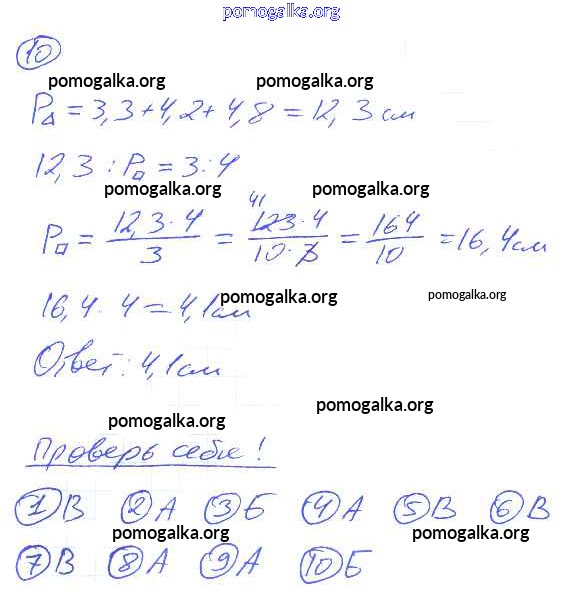 pomogalka.org
10
pomogalka.org pomogalka.org
P△ = 3,3+4,2+4,8 = 12,3см
12,3 : P□ = 3:4
pomogalka.org pomogalka.org
P□ = 12,3·4/3 = 41 123·4/10·3 = 164/10 = 16,4см
pomogalka.org pomogalka.org
16,4 · 4 = 4,1см
Ответ: 4,1см
pomogalka.org
pomogalka.org
Проверь себя!
pomogalka.org
1 В 2 А 3 Б 4 А 5 В 6 В
pomogalka.org pomogalka.org
7 В 8 А 9 А 10 Б